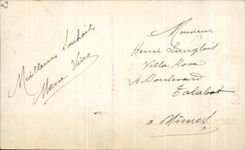 Meilleurs Souhaits
Monsieur
Henri Langlois
Villa Rosa
Boulevard
Talabot
à Nîmes